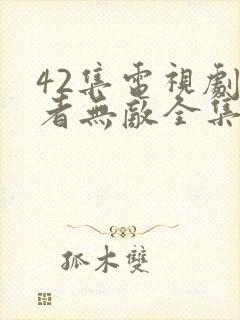 42集電視劇
者無敵全集
孤木雙